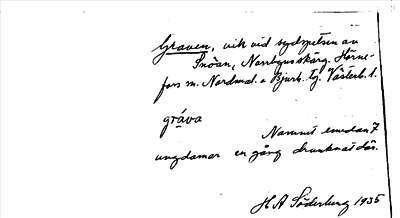 Graven, vik vid sydspetsen av
Snöan, Norrbyns skärg. Hörne-
fors sn. Nordmal. o Bjurh. tg. Västerb. l.
gråva
Namnet emedan 7
ungdomar en gång drunknat där.
H A Söderberg 1935